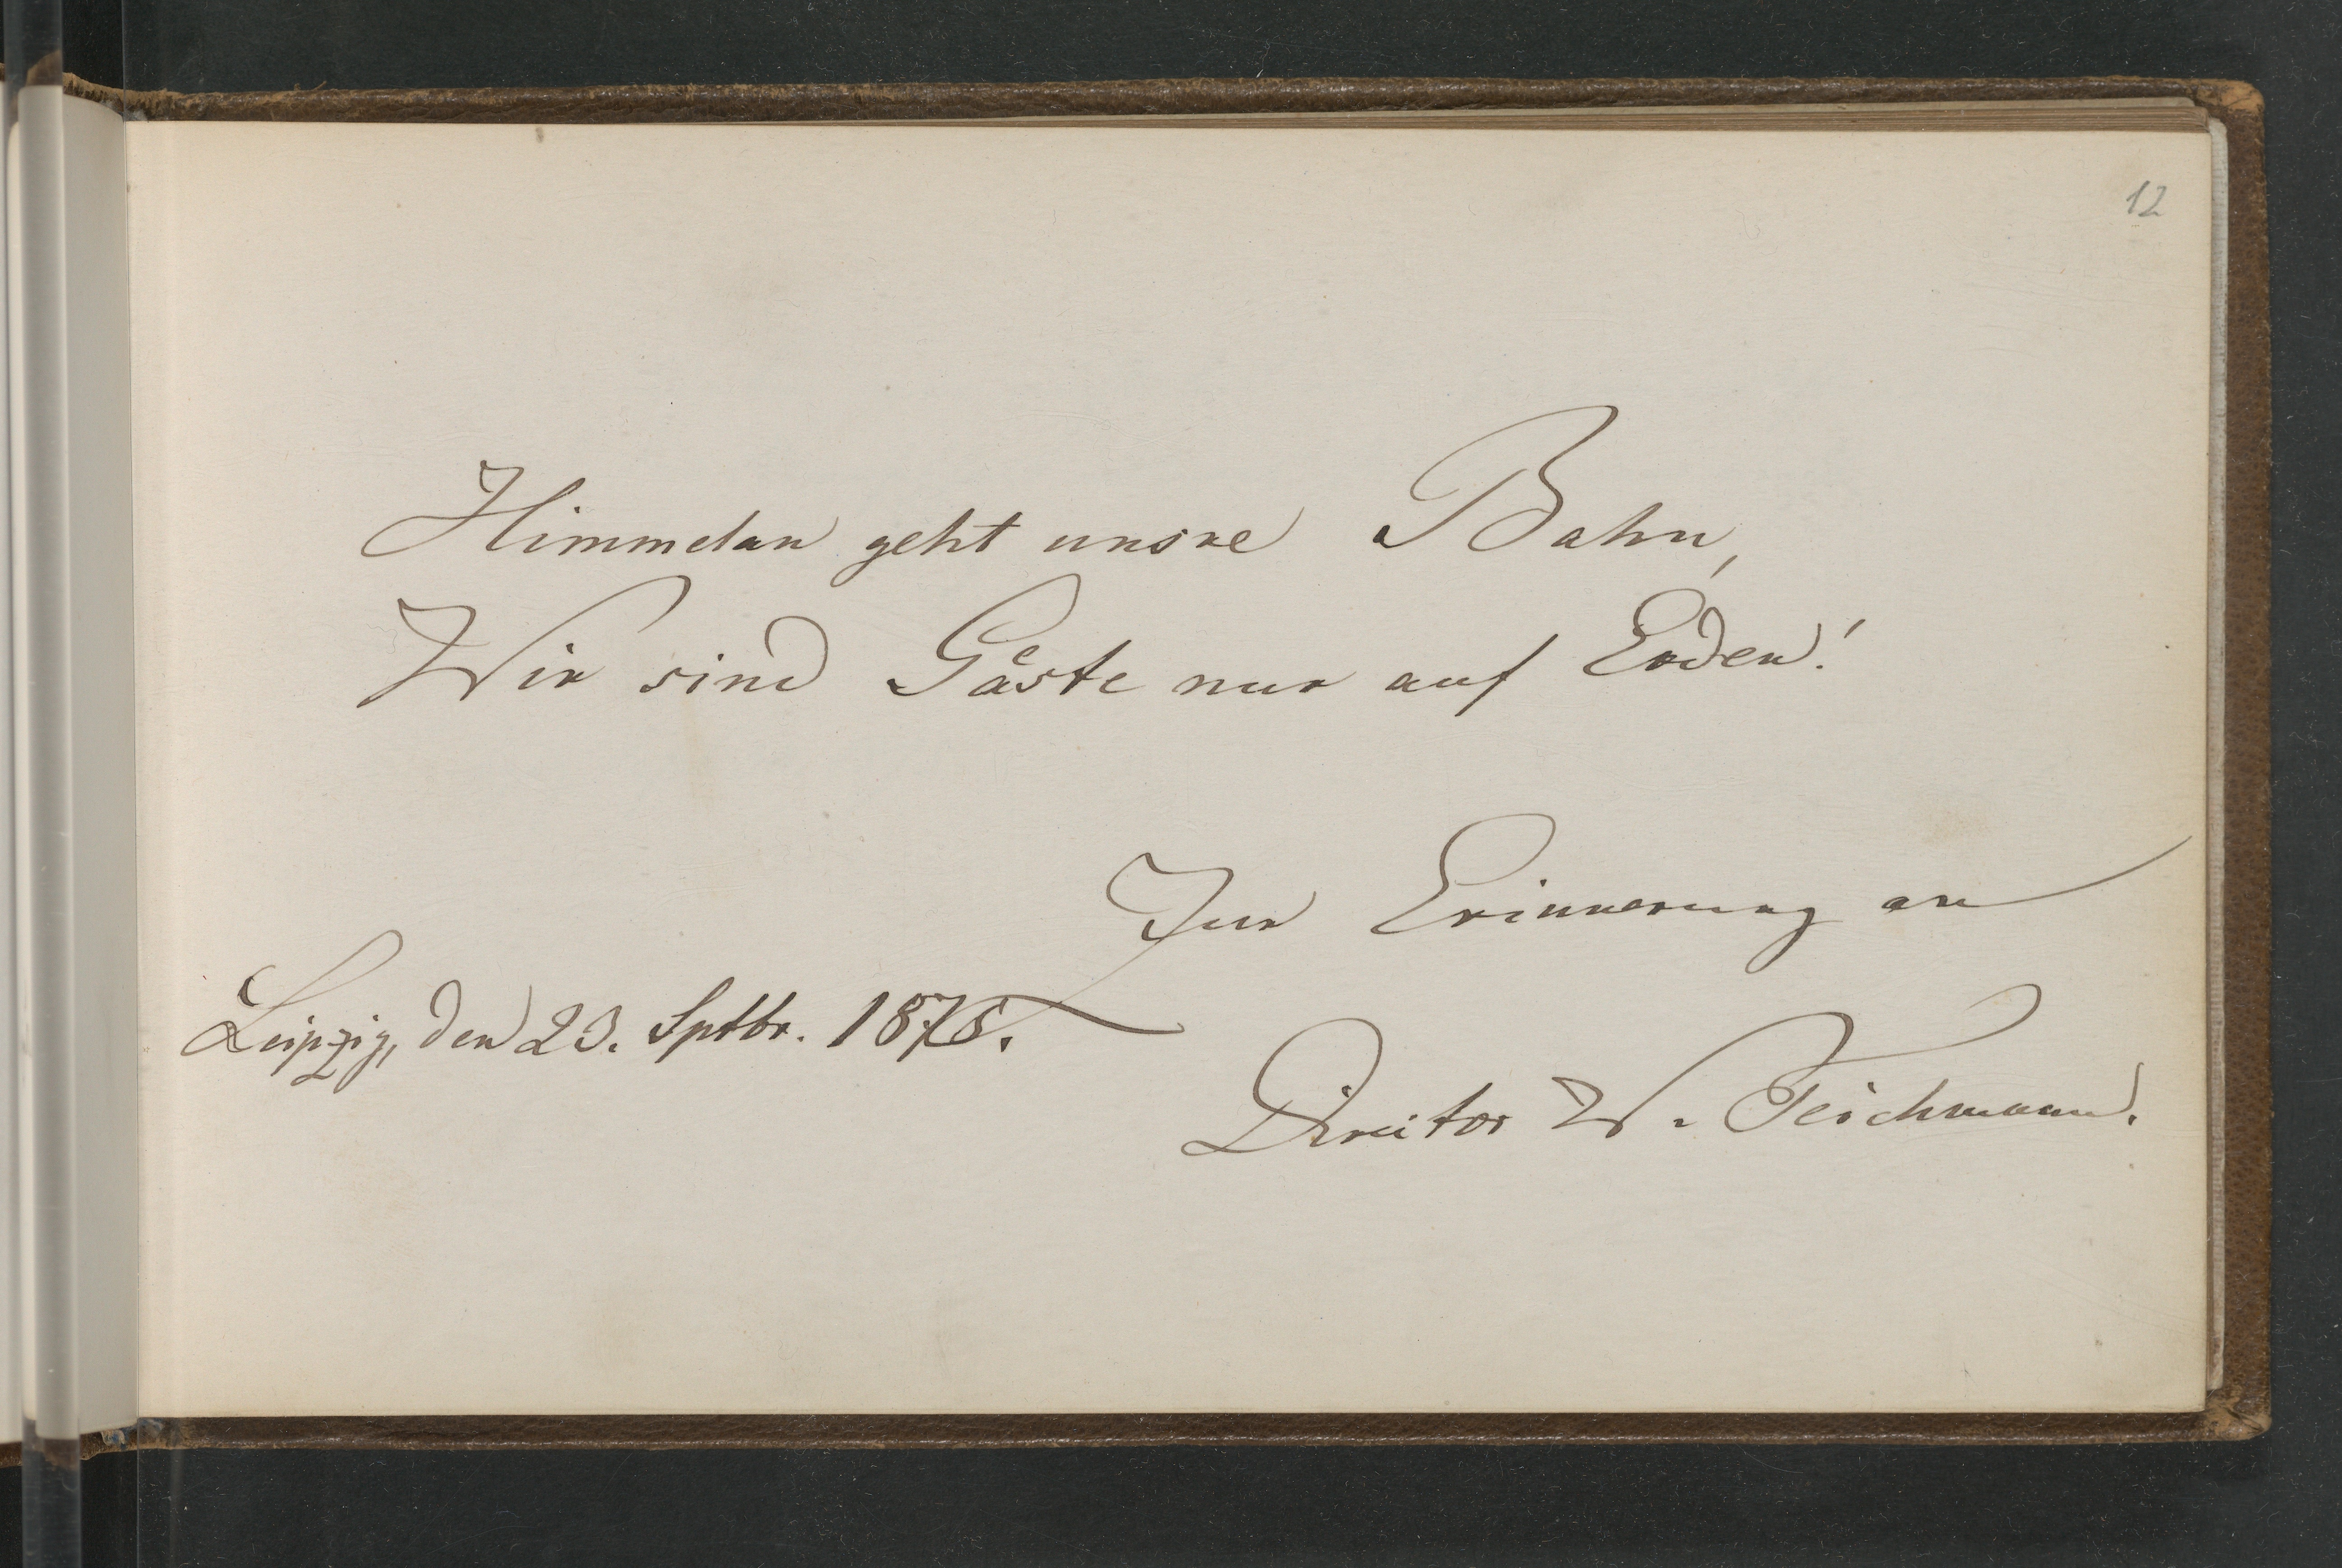 12
Himmelan geht unsre Bahn,
Wir sind Gäste nur auf Erden!
Zur Erinnerung an
Leipzig, den 23. Sptbr. 1878.
Director W. Teichmann.